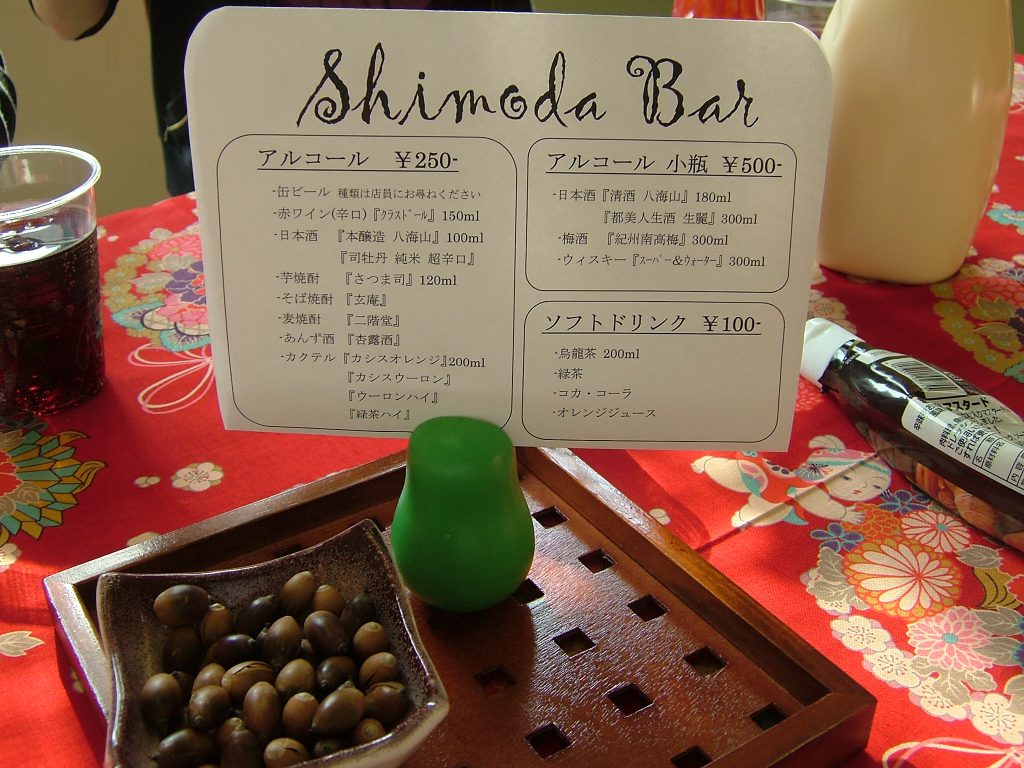 Shimoda Bar
アルコール ￥250-
-缶ビール 種類は店員にお尋ねください
-赤ワイン(辛口)『ｸﾗｽﾄﾞｰﾙ』150ml
-日本酒 『本醸造 八海山』100ml
『司牡丹 純米 超辛口』
-芋焼酎 『さつま司』120ml
-そば焼酎 『玄庵』
-麦焼酎 『二階堂』
-あんず酒 『杏露酒』
-カクテル『カシスオレンジ』200ml
『カシスウーロン』
『ウーロンハイ』
『緑茶ハイ』
アルコール 小瓶 ￥500-
-日本酒『清酒 八海山』180ml
『都美人生酒 生麗』300ml
-梅酒 『紀州南高梅』300ml
-ウィスキー『ｽｰﾊﾟｰ&ｳｫｰﾀｰ』300ml
ソフトドリンク ￥100-
-烏龍茶 200ml
-緑茶
-コカ・コーラ
-オレンジジュース
マスタード